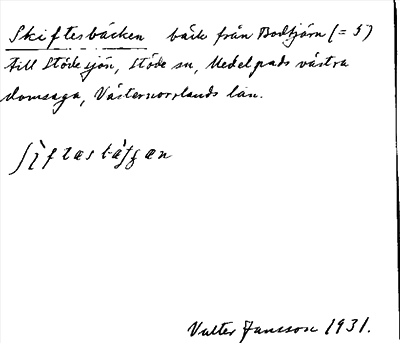 Skiftesbäcken bäck från Bodtjärn (= 5)
till Stödesjön, Stöde sn, Medelpads västra
domsaga, Västernorrlands län.
ʃìftasbàʃʒæn
Valter Jansson 1931.